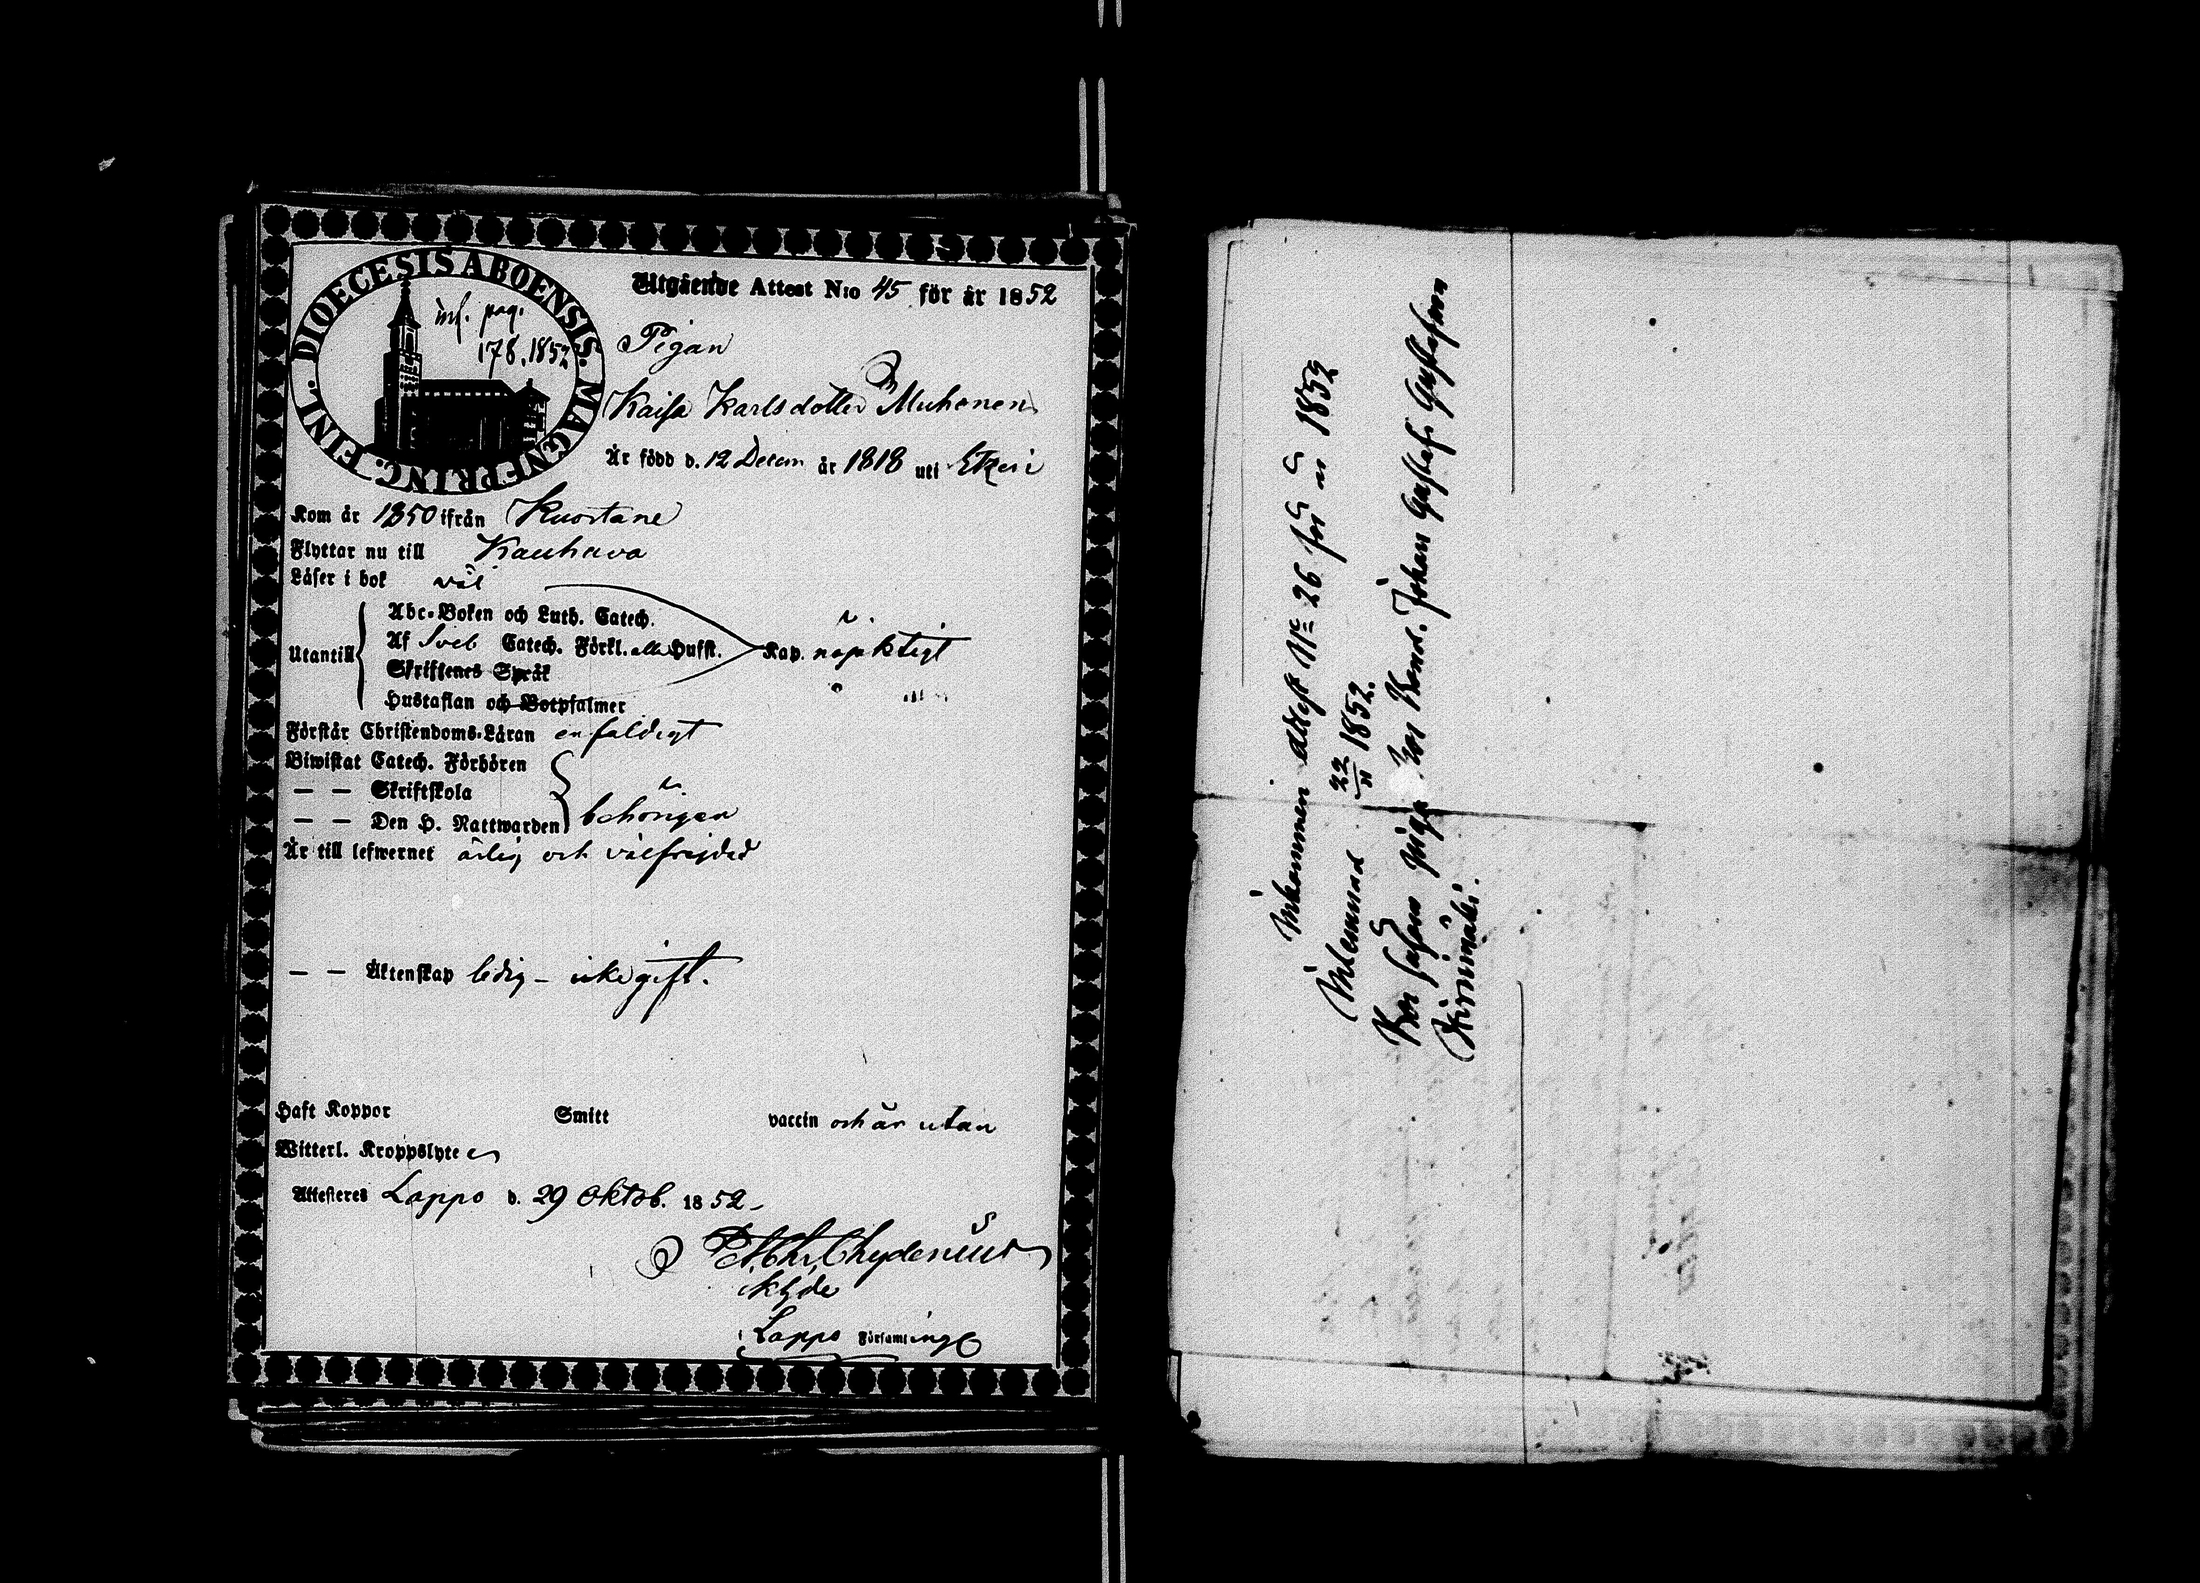 DIOECESIS ABOENSIS. MAGNI PRINC. FINL.
inf. pag.
178. 1852
Utgående Attest N:o 45 för år 1852
Pigan
Kaisa Karlsdotter Muhonen
Är född d. 12 Decem år 1818 uti Etzeri
Kom år 1850 ifrån Kuortane
Flyttar nu till Kauhava
Läser i bok väl
Utantill
Abc-Boken och Luth. Catech.
Af Sveb Catech. Förkl. alla Hufst. Kap. nöjaktigt
Skriftenes Språk
Hustaflan och Botpsalmer
Förstår Christendoms-Läran enfaldigt
Biwistat Catech. Förhören
— — Skriftskola
— — Den H. Nattwarden behörigen
Är till lefwernet ärlig och välfrejdad
— — Äktenskap ledig - icke gift.
Haft Koppor Smitt vaccin och är utan
Witterl. Kroppslyte
Attesteres Lappo d. 29 Oktob. 1852
Chydenius
Lappo Församling
Inkommen attest No 26 för år 1852
Inlemnad 22/11 1852.
Kai sasom piga hos Bond. Johan Gustafs Gustafsson